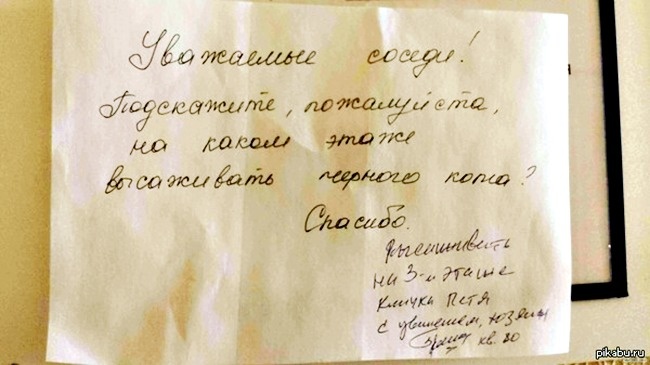 Уважаемые соседи!
Подскажите, пожалуйста,
на каком этаже
высаживать черного кота?
Спасибо.
Высаживать
на 3-м этаже
кличка Петя
с уважением, хозяин
кв. 80
pikabu.ru